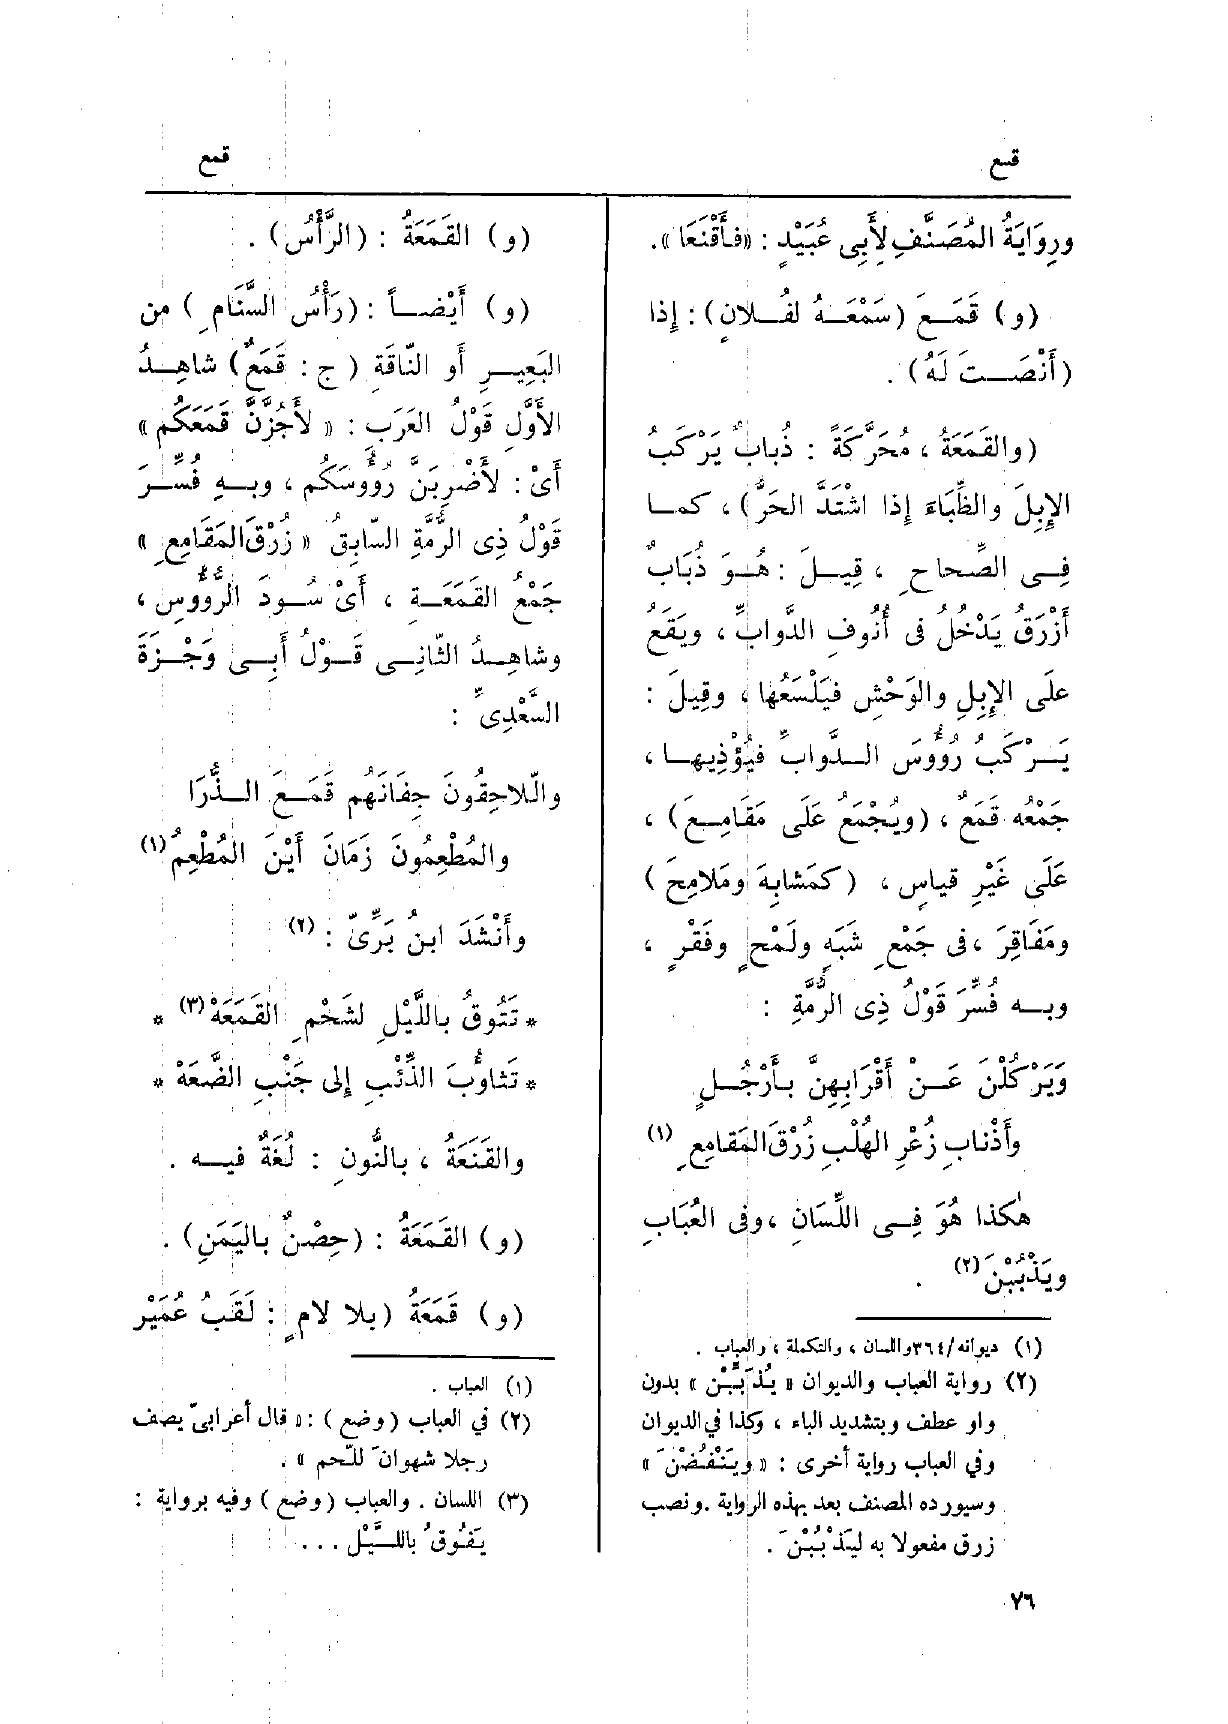 قمع
قمع
ورِوَايَةُ المُصَنَّفِ لِأَبِى عُبَيْدٍ : «فأَقْنَعَا».
(و) قَمَعَ (سَمْعَهُ لفُلانٍ) : إِذا
(أَنْصَتَ لَهُ) .
(والقَمَعَةُ ، مُحَرَّكَةً : ذُبابٌ يَرْكَبُ
الإِبِلَ والظِّبَاءَ إِذا اشْتَدَّ الحَرُّ) ، كما
فِى الصِّحاحِ ، قِيلَ : هُوَ ذُبَابٌ
أَزْرَقُ يَدْخُلُ فى أُنُوفِ الدَّوابِّ ، ويَقَعُ
علَى الإِبِلِ والوَحْشِ فيَلْسَعُها ، وقِيلَ :
يَرْكَبُ رُؤُوسَ الدَّوابِّ فيُؤْذِيها ،
جَمْعُه قَمَعٌ ، (ويُجْمَعُ عَلَى مَقَامِعَ) ،
عَلَى غَيْرِ قياسٍ ، (كمَشابِهَ ومَلامِحَ)
ومَفَاقِرَ ، فى جَمْعِ شَبَهٍ ولَمْحٍ وفَقْرٍ ،
وبه فُسِّرَ قَوْلُ ذِى الرُّمَّةِ :
وَيَرْكُلْنَ عَنْ أَقْرَابِهِنَّ بأَرْجُلٍ
وأَذْنابِ زُعْرِ الهُلْبِ زُرْقَ المَقامِعِ (١)
هٰكذا هُوَ فِى اللِّسَانِ ، وفى العُبَابِ
ويَذْبُبْنَ (٢) .
(١) ديوانه/٣٦٤ واللسان ، والتكملة ، والعباب .
(٢) رواية العباب والديوان « يُذَبِّبْن » بدون
واو عطف وبتشديد الباء ، وكذا في الديوان
وفي العباب رواية أخرى : « ويَنْفُضْنَ »
وسيورده المصنف بعد بهذه الرواية . ونصب
زرق مفعولا به ليَذْبُبْنَ .
(و) القَمَعَةُ : (الرَّأْسُ) .
(و) أَيْضاً : (رَأْسُ السَّنَامِ ) من
البَعِيرِ أَو النّاقَةِ ( ج : قَمَعٌ) شاهِدُ
الأَوَّلِ قَوْلُ العَرَبِ : « لأَجُزَّنَّ قَمَعَكُم »
أَىْ : لأَضْرِبَنَّ رُؤُوسَكُم ، وبهِ فُسِّرَ
قَوْلُ ذِى الرُّمَّةِ السّابِقُ « زُرْقَ المَقَامِعِ »
جَمْعُ القَمَعَةِ ، أَىْ سُودَ الرؤوسِ ،
وشاهِدُ الثّانِى قَوْلُ أَبِى وَجْزَةَ
السَّعْدِىِّ :
والّلاحِقُونَ جِفَانَهُم قَمَعَ الذُّرَا
والمُطْعِمُونَ زَمَانَ أَيْنَ المُطْعِمُ (١)
وأَنْشَدَ ابنُ بَرِّىّ : (٢)
* تَتُوقُ باللَّيْلِ لشَحْمِ القَمَعَهْ (٣) *
* تَثاؤُبَ الذِّئْبِ إِلى جَنْبِ الضَّعَهْ *
والقَنَعَةُ ، بالنُّونِ : لُغَةٌ فيه .
(و) القَمَعَةُ : (حِصْنٌ باليَمَنِ) .
(و) قَمَعَةُ (بلا لامٍ : لَقَبُ عُمَيْرِ
(١) العباب .
(٢) في العباب (وضع) : « قال أعرابىّ يصف
رجلا شهوانَ للّحم » .
(٣) اللسان . والعباب (وضع) وفيه برواية :
يَفُوقُ باللَّيْل ...
٧٦